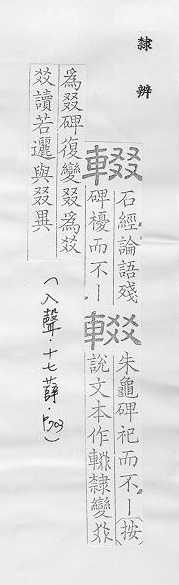 隸辨
輟
石經論語殘
碑櫌而不丨
輟
朱龜碑祀而不丨(按)
說文本作輟隸變叕
為叕碑復變叕為㸚
㸚讀若邐與叕異
(入聲·十七薛·P709)